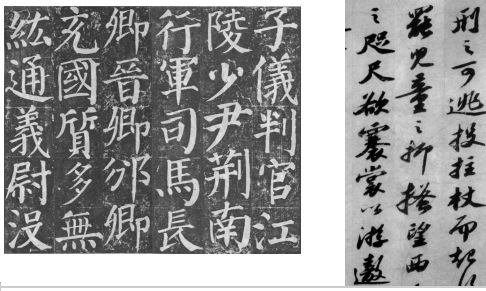 子儀判官江
陵少尹荊南
行軍司馬長
卿晉卿邠卿
充國質多無
紘通義尉沒
刑之可逃投拄杖而起
罷兒童之抑搔望西
之咫尺欲褰裳以游遨